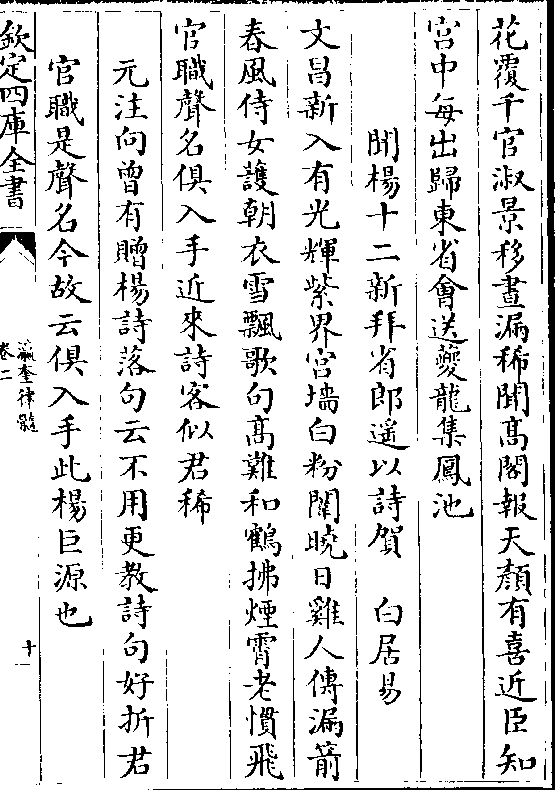 花覆千官淑景移晝漏稀聞髙閣報天顔有喜近臣知
宫中每出歸東省㑹送夔龍集鳳池
聞楊十二新拜省郎遥以詩賀　白居易
文昌新入有光輝紫界宫墻白粉闈曉日雞人傳漏箭
春風侍女護朝衣雪飄歌句髙難和鶴拂煙霄老慣飛
官職聲名俱入手近來詩客似君稀
元注向曾有贈楊詩落句云不用更教詩句好折君
官職是聲名今故云俱入手此楊巨源也
欽定四庫全書
瀛奎律髓
卷二
十一